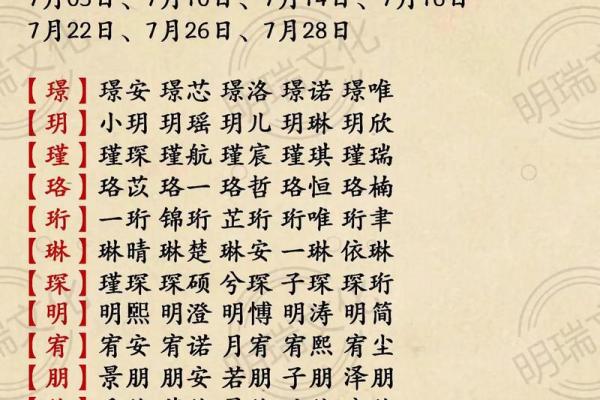 7月05日、7月10日、7月14日、7月16日
7月22日、7月26日、7月28日
【璟】璟安 璟芯 璟洛 璟诺 璟唯
【玥】小玥 玥瑶 玥儿 玥琳 玥欣
【瑾】瑾琛 瑾航 瑾宸 瑾琪 瑾瑞
【珞】珞苡 珞一 珞哲 珞恒 珞楠
【珩】一珩 锦珩 芷珩 珩唯 珩聿
【琳】琳晴 琳楚 琳安 一琳 依琳
【琛】瑾琛 琛硕 兮琛 子琛 琛珩
【明】明熙 明澄 明博 明涛 明简
【宥】宥安 宥诺 月宥 宥熙 宥尘
【朋】景朋 朋安 若朋 子朋 泽朋
明瑞文化